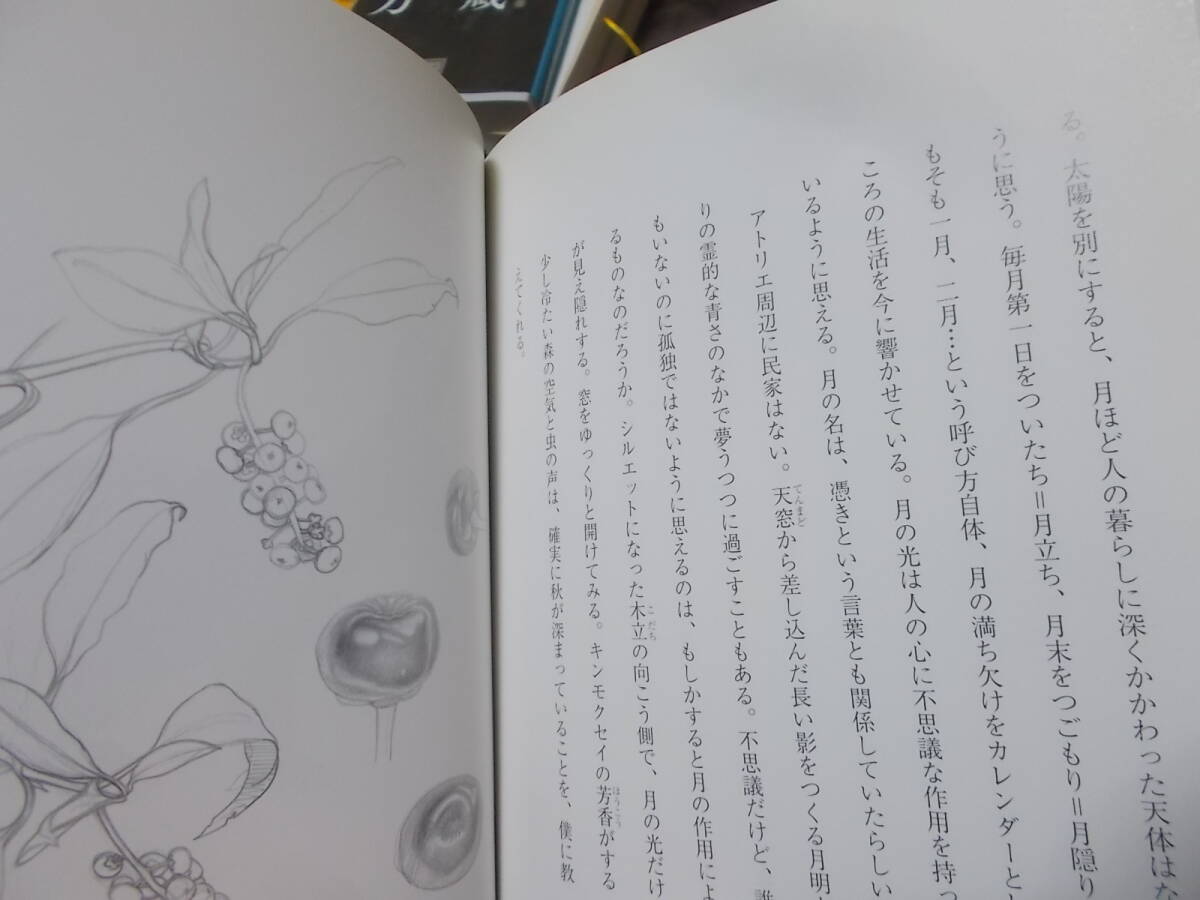 る。太陽を別にすると、月ほど人の暮らしに深くかかわった天体はな
うに思う。毎月第一日をついたち＝月立ち、月末をつごもり＝月隠り
もそも一月、二月…という呼び方自体、月の満ち欠けをカレンダーと
ころの生活を今に響かせている。月の光は人の心に不思議な作用を持っ
いるように思える。月の名は、憑きという言葉とも関係していたらしい
アトリエ周辺に民家はない。天窓（てんまど）から差し込んだ長い影をつくる月明
りの霊的な青さのなかで夢うつつに過ごすこともある。不思議だけど、誰
もいないのに孤独ではないように思えるのは、もしかすると月の作用によ
るものなのだろうか。シルエットになった木立（こだち）の向こう側で、月の光だけ
が見え隠れする。窓をゆっくりと開けてみる。キンモクセイの芳香（ほうこう）がする
少し冷たい森の空気と虫の声は、確実に秋が深まっていることを、僕に教
えてくれる。
蔵